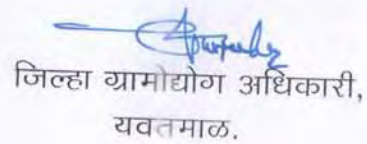 जिल्हा ग्रामोद्योग अधिकारी,
यवतमाळ.